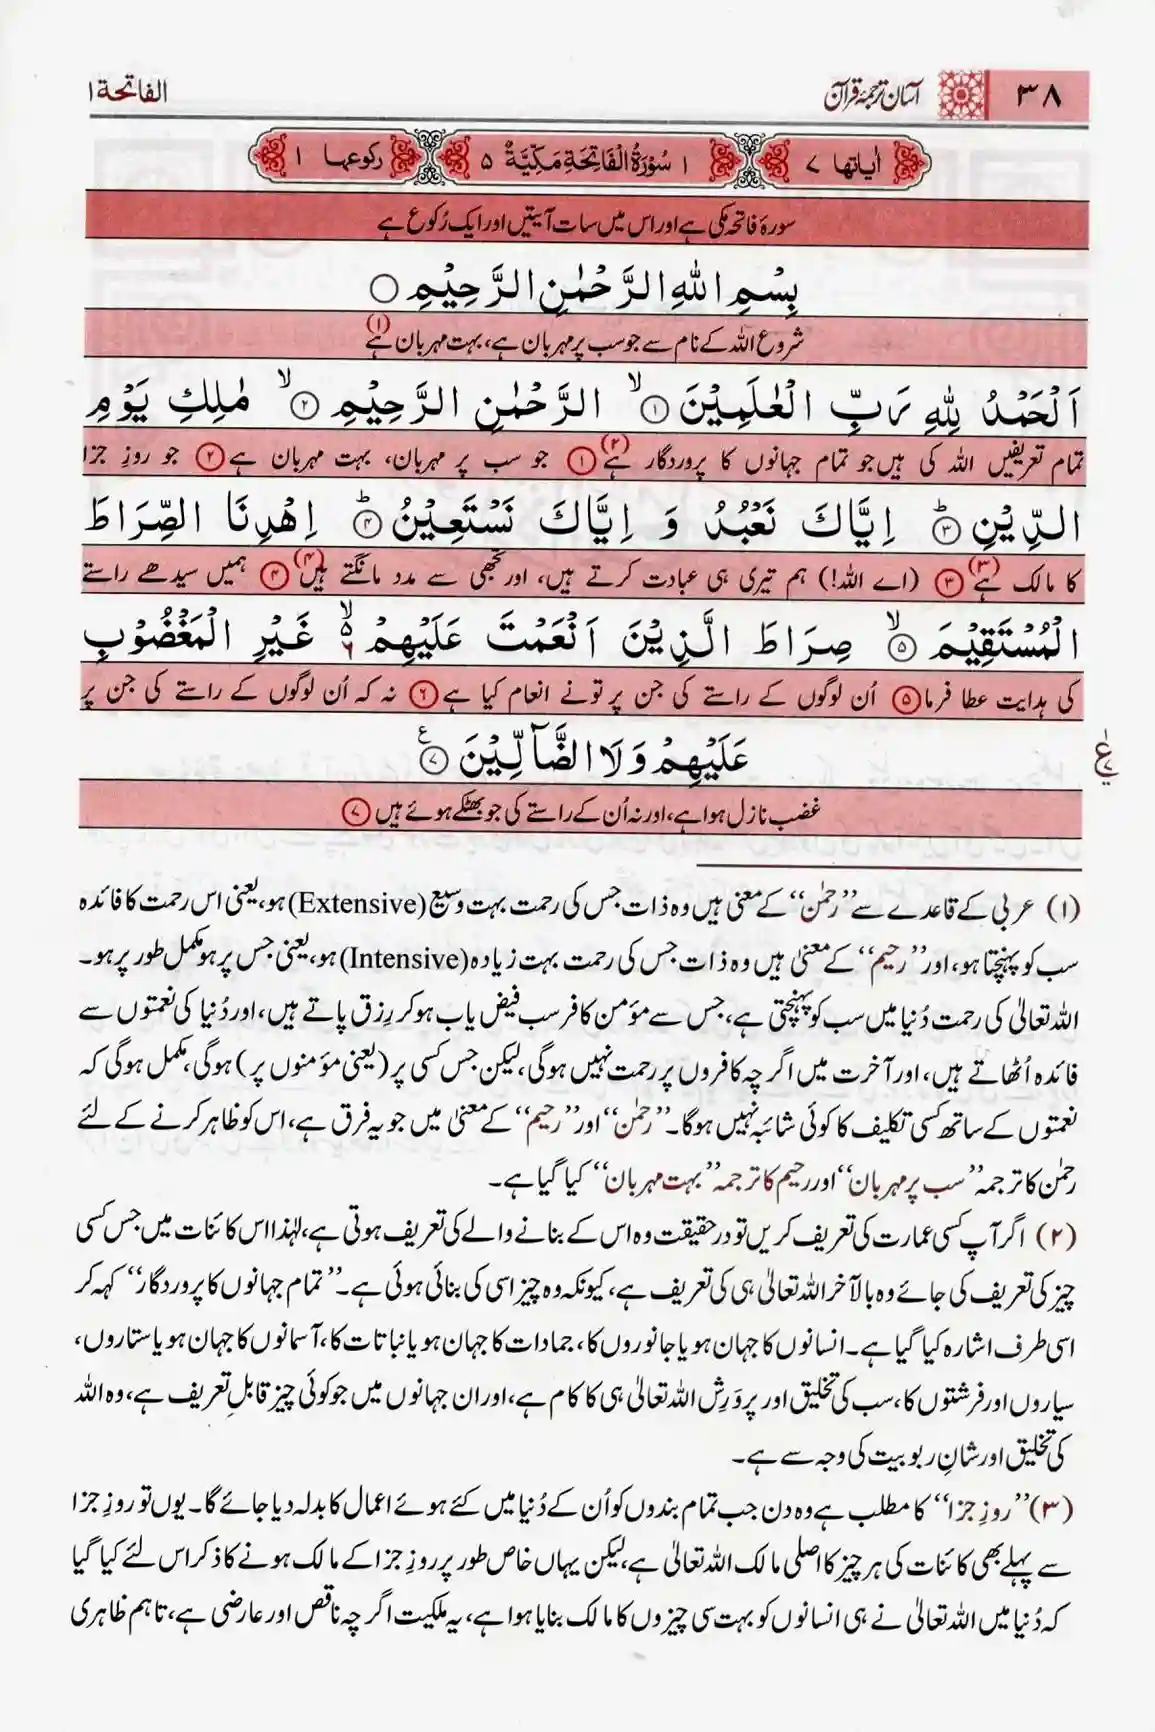 ۳۸ آسان ترجمۂ قرآن الفاتحة ۱
اٰیاتها ۷ ۱ سُوْرَةُ الْفَاتِحَةِ مَكِّيَّةٌ ۵ رکوعها ۱
سورۂ فاتحہ مکی ہے اور اس میں سات آیتیں اور ایک رُکوع ہے
بِسْمِ اللّٰهِ الرَّحْمٰنِ الرَّحِيْمِ ○
شروع اللہ کے نام سے جو سب پر مہربان ہے، بہت مہربان ہے (۱)
اَلْحَمْدُ لِلّٰهِ رَبِّ الْعٰلَمِيْنَ ۙ﴿۱﴾ الرَّحْمٰنِ الرَّحِيْمِ ۙ﴿۲﴾ مٰلِكِ يَوْمِ
تمام تعریفیں اللہ کی ہیں جو تمام جہانوں کا پروردگار ہے (۲) ﴿۱﴾ جو سب پر مہربان، بہت مہربان ہے ﴿۲﴾ جو روزِ جزا
الدِّيْنِ ؕ﴿۳﴾ اِيَّاكَ نَعْبُدُ وَ اِيَّاكَ نَسْتَعِيْنُ ؕ﴿۴﴾ اِهْدِنَا الصِّرَاطَ
کا مالک ہے (۳) ﴿۳﴾ (اے اللہ!) ہم تیری ہی عبادت کرتے ہیں، اور تجھی سے مدد مانگتے ہیں (۴) ﴿۴﴾ ہمیں سیدھے راستے
الْمُسْتَقِيْمَ ۙ﴿۵﴾ صِرَاطَ الَّذِيْنَ اَنْعَمْتَ عَلَيْهِمْ ۙ۵ ۶ غَيْرِ الْمَغْضُوْبِ
کی ہدایت عطا فرما ﴿۵﴾ اُن لوگوں کے راستے کی جن پر تونے انعام کیا ہے ﴿۶﴾ نہ کہ اُن لوگوں کے راستے کی جن پر
عَلَيْهِمْ وَلَا الضَّآلِّيْنَ ﴿۷﴾ ع
غضب نازل ہوا ہے، اور نہ اُن کے راستے کی جو بھٹکے ہوئے ہیں ﴿۷﴾
(۱) عربی کے قاعدے سے ”رحمٰن“ کے معنی ہیں وہ ذات جس کی رحمت بہت وسیع (Extensive) ہو، یعنی اس رحمت کا فائدہ
سب کو پہنچتا ہو، اور ”رحیم“ کے معنیٰ ہیں وہ ذات جس کی رحمت بہت زیادہ (Intensive) ہو، یعنی جس پر ہو مکمل طور پر ہو۔
اللہ تعالیٰ کی رحمت دُنیا میں سب کو پہنچتی ہے، جس سے مؤمن کافر سب فیض یاب ہوکر رِزق پاتے ہیں، اور دُنیا کی نعمتوں سے
فائدہ اُٹھاتے ہیں، اور آخرت میں اگرچہ کافروں پر رحمت نہیں ہوگی، لیکن جس کسی پر (یعنی مؤمنوں پر) ہوگی، مکمل ہوگی کہ
نعمتوں کے ساتھ کسی تکلیف کا کوئی شائبہ نہیں ہوگا۔ ”رحمٰن“ اور ”رحیم“ کے معنیٰ میں جو یہ فرق ہے، اس کو ظاہر کرنے کے لئے
رحمٰن کا ترجمہ ”سب پر مہربان“ اور رحیم کا ترجمہ ”بہت مہربان“ کیا گیا ہے۔
(۲) اگر آپ کسی عمارت کی تعریف کریں تو درحقیقت وہ اس کے بنانے والے کی تعریف ہوتی ہے، لہٰذا اس کائنات میں جس کسی
چیز کی تعریف کی جائے وہ بالآخر اللہ تعالیٰ ہی کی تعریف ہے، کیونکہ وہ چیز اسی کی بنائی ہوئی ہے۔ ”تمام جہانوں کا پروردگار“ کہہ کر
اسی طرف اشارہ کیا گیا ہے۔ انسانوں کا جہان ہو یا جانوروں کا، جمادات کا جہان ہو یا نباتات کا، آسمانوں کا جہان ہو یا ستاروں،
سیاروں اور فرشتوں کا، سب کی تخلیق اور پروَرِش اللہ تعالیٰ ہی کا کام ہے، اور ان جہانوں میں جو کوئی چیز قابلِ تعریف ہے، وہ اللہ
کی تخلیق اور شانِ ربوبیت کی وجہ سے ہے۔
(۳) ”روزِ جزا“ کا مطلب ہے وہ دن جب تمام بندوں کو اُن کے دُنیا میں کئے ہوئے اعمال کا بدلہ دیا جائے گا۔ یوں تو روزِ جزا
سے پہلے بھی کائنات کی ہر چیز کا اصلی مالک اللہ تعالیٰ ہے، لیکن یہاں خاص طور پر روزِ جزا کے مالک ہونے کا ذکر اس لئے کیا گیا
کہ دُنیا میں اللہ تعالیٰ نے ہی انسانوں کو بہت سی چیزوں کا مالک بنایا ہوا ہے، یہ ملکیت اگرچہ ناقص اور عارضی ہے، تاہم ظاہری